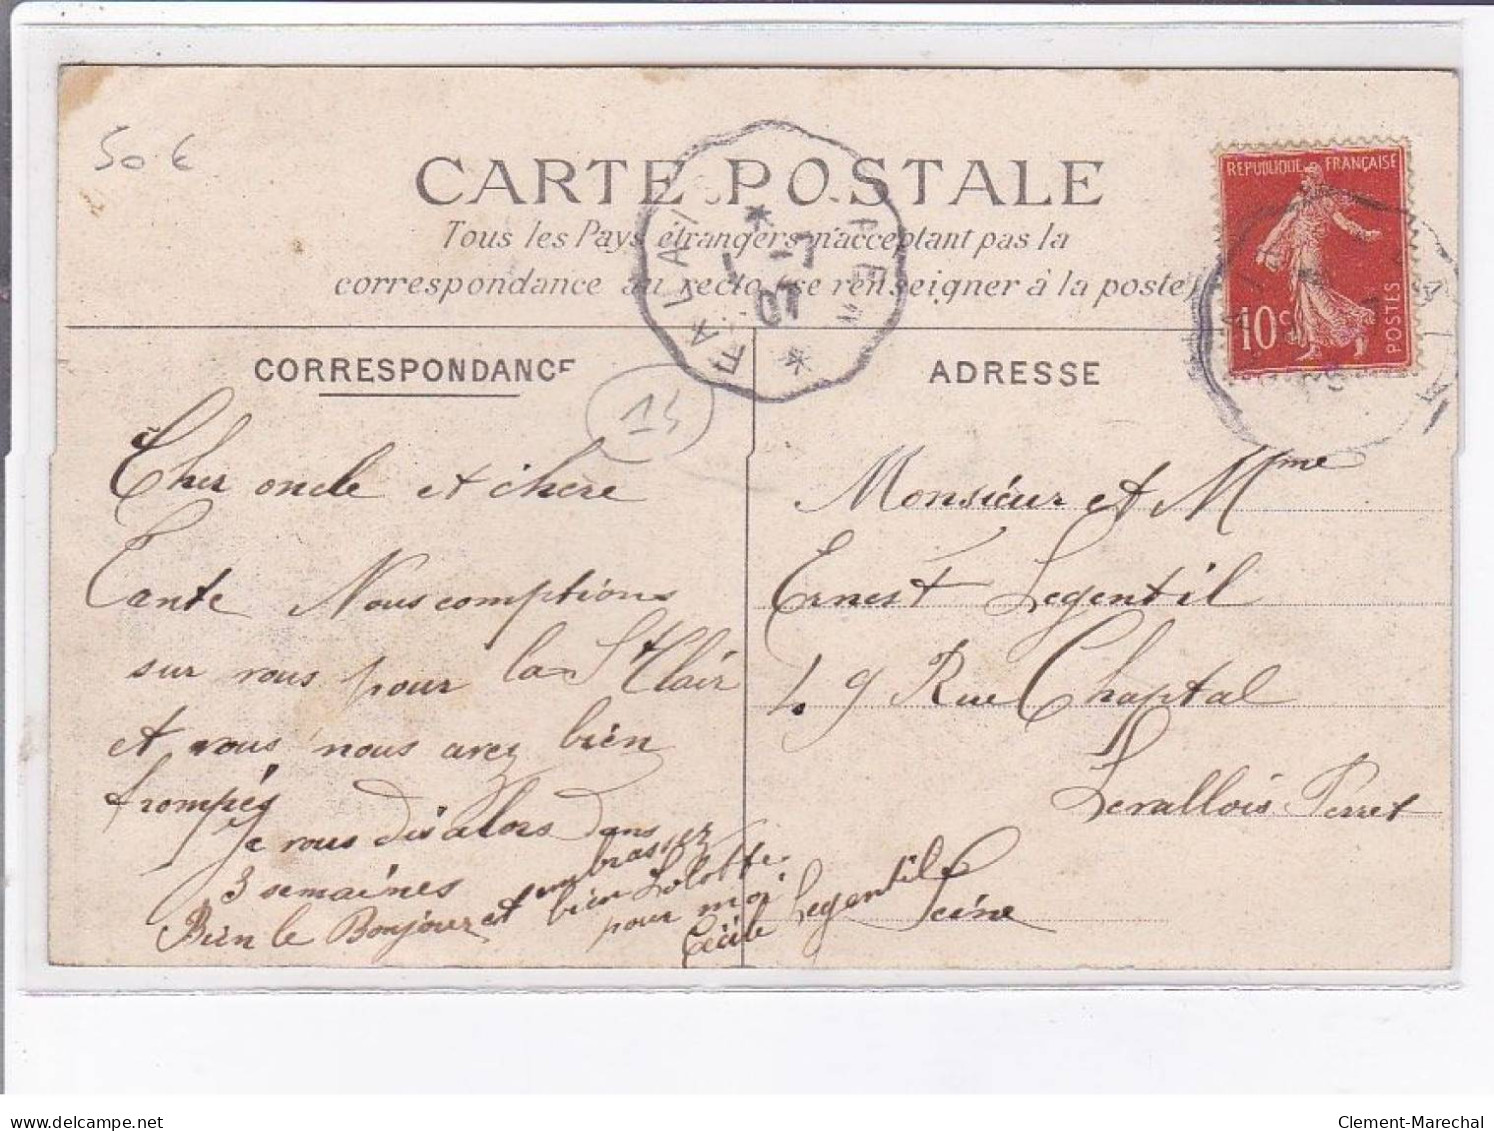 50 €
CARTE POSTALE
Tous les Pays étrangers n'acceptant pas la
correspondance au recto, se renseigner à la poste
RÉPUBLIQUE FRANÇAISE
10c
POSTES
FALAI
1 -7
07
CORRESPONDANCE
14
ADRESSE
Cher oncle et chère
Tante Nous comptions
sur vous pour la St Clair
et vous nous avez bien
trompés
Je vous dis alors dans
3 semaines
Bien le Bonjour et embrassez
bien Lolotte
pour moi
Cécile Legentil
Monsieur et Mme
Ernest Legentil
49 Rue Chaptal
Levallois-Perret
Seine
delcampe.net
Clement-Marechal